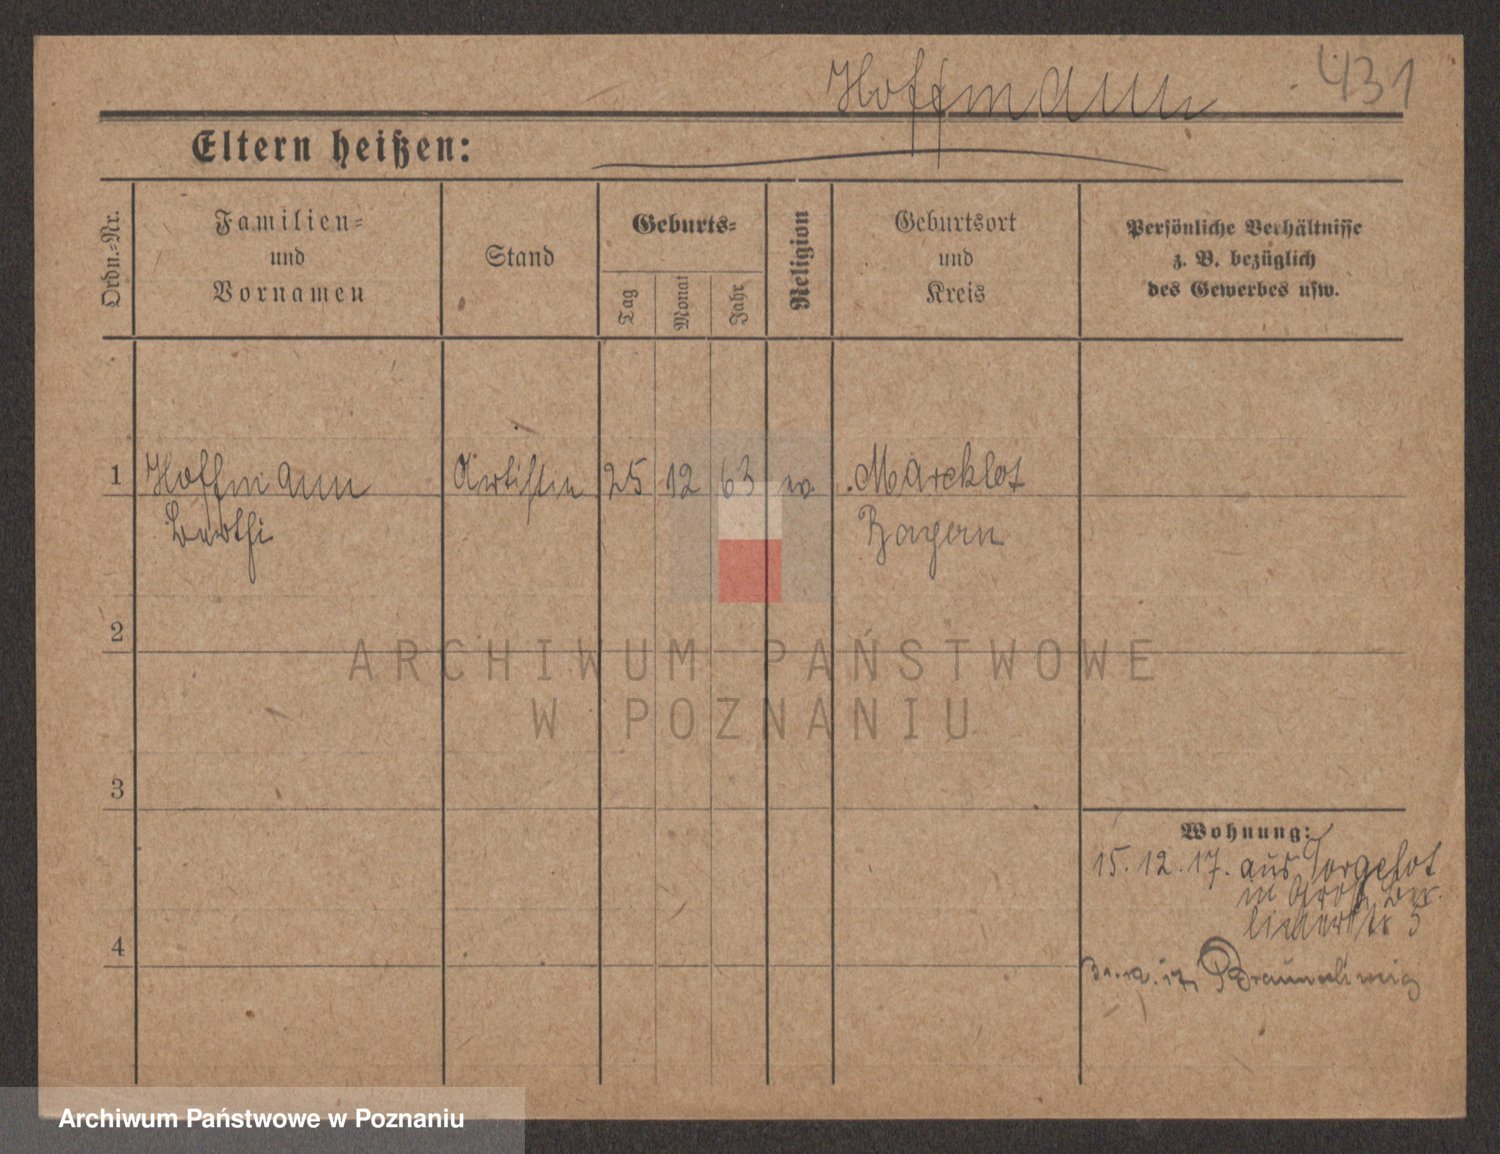 Hoffmann 431
Eltern heißen:
Ordn.-Nr.
Familien-
und
Vornamen
Stand
Geburts-
Tag
Monat
Jahr
Religion
Geburtsort
und
Kreis
Persönliche Verhältnisse
z. B. bezüglich
des Gewerbes usw.
1 Hoffmann Artistin 25 12 63 ev. Marcklot
Berthi Bayern
2
3
4
Wohnung:
15.12.17. aus Torgelot
in Groß Ber-
linerstr 5
31.12.17 Braunschweig
ARCHIWUM PAŃSTWOWE
W POZNANIU
Archiwum Państwowe w Poznaniu